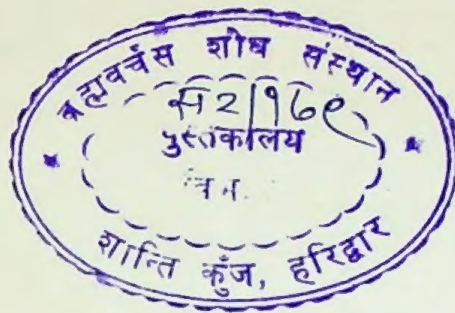 ब्रह्मवर्चस शोध संस्थान
स2/१६९
पुस्तकालय
शान्ति कुँज, हरिद्वार